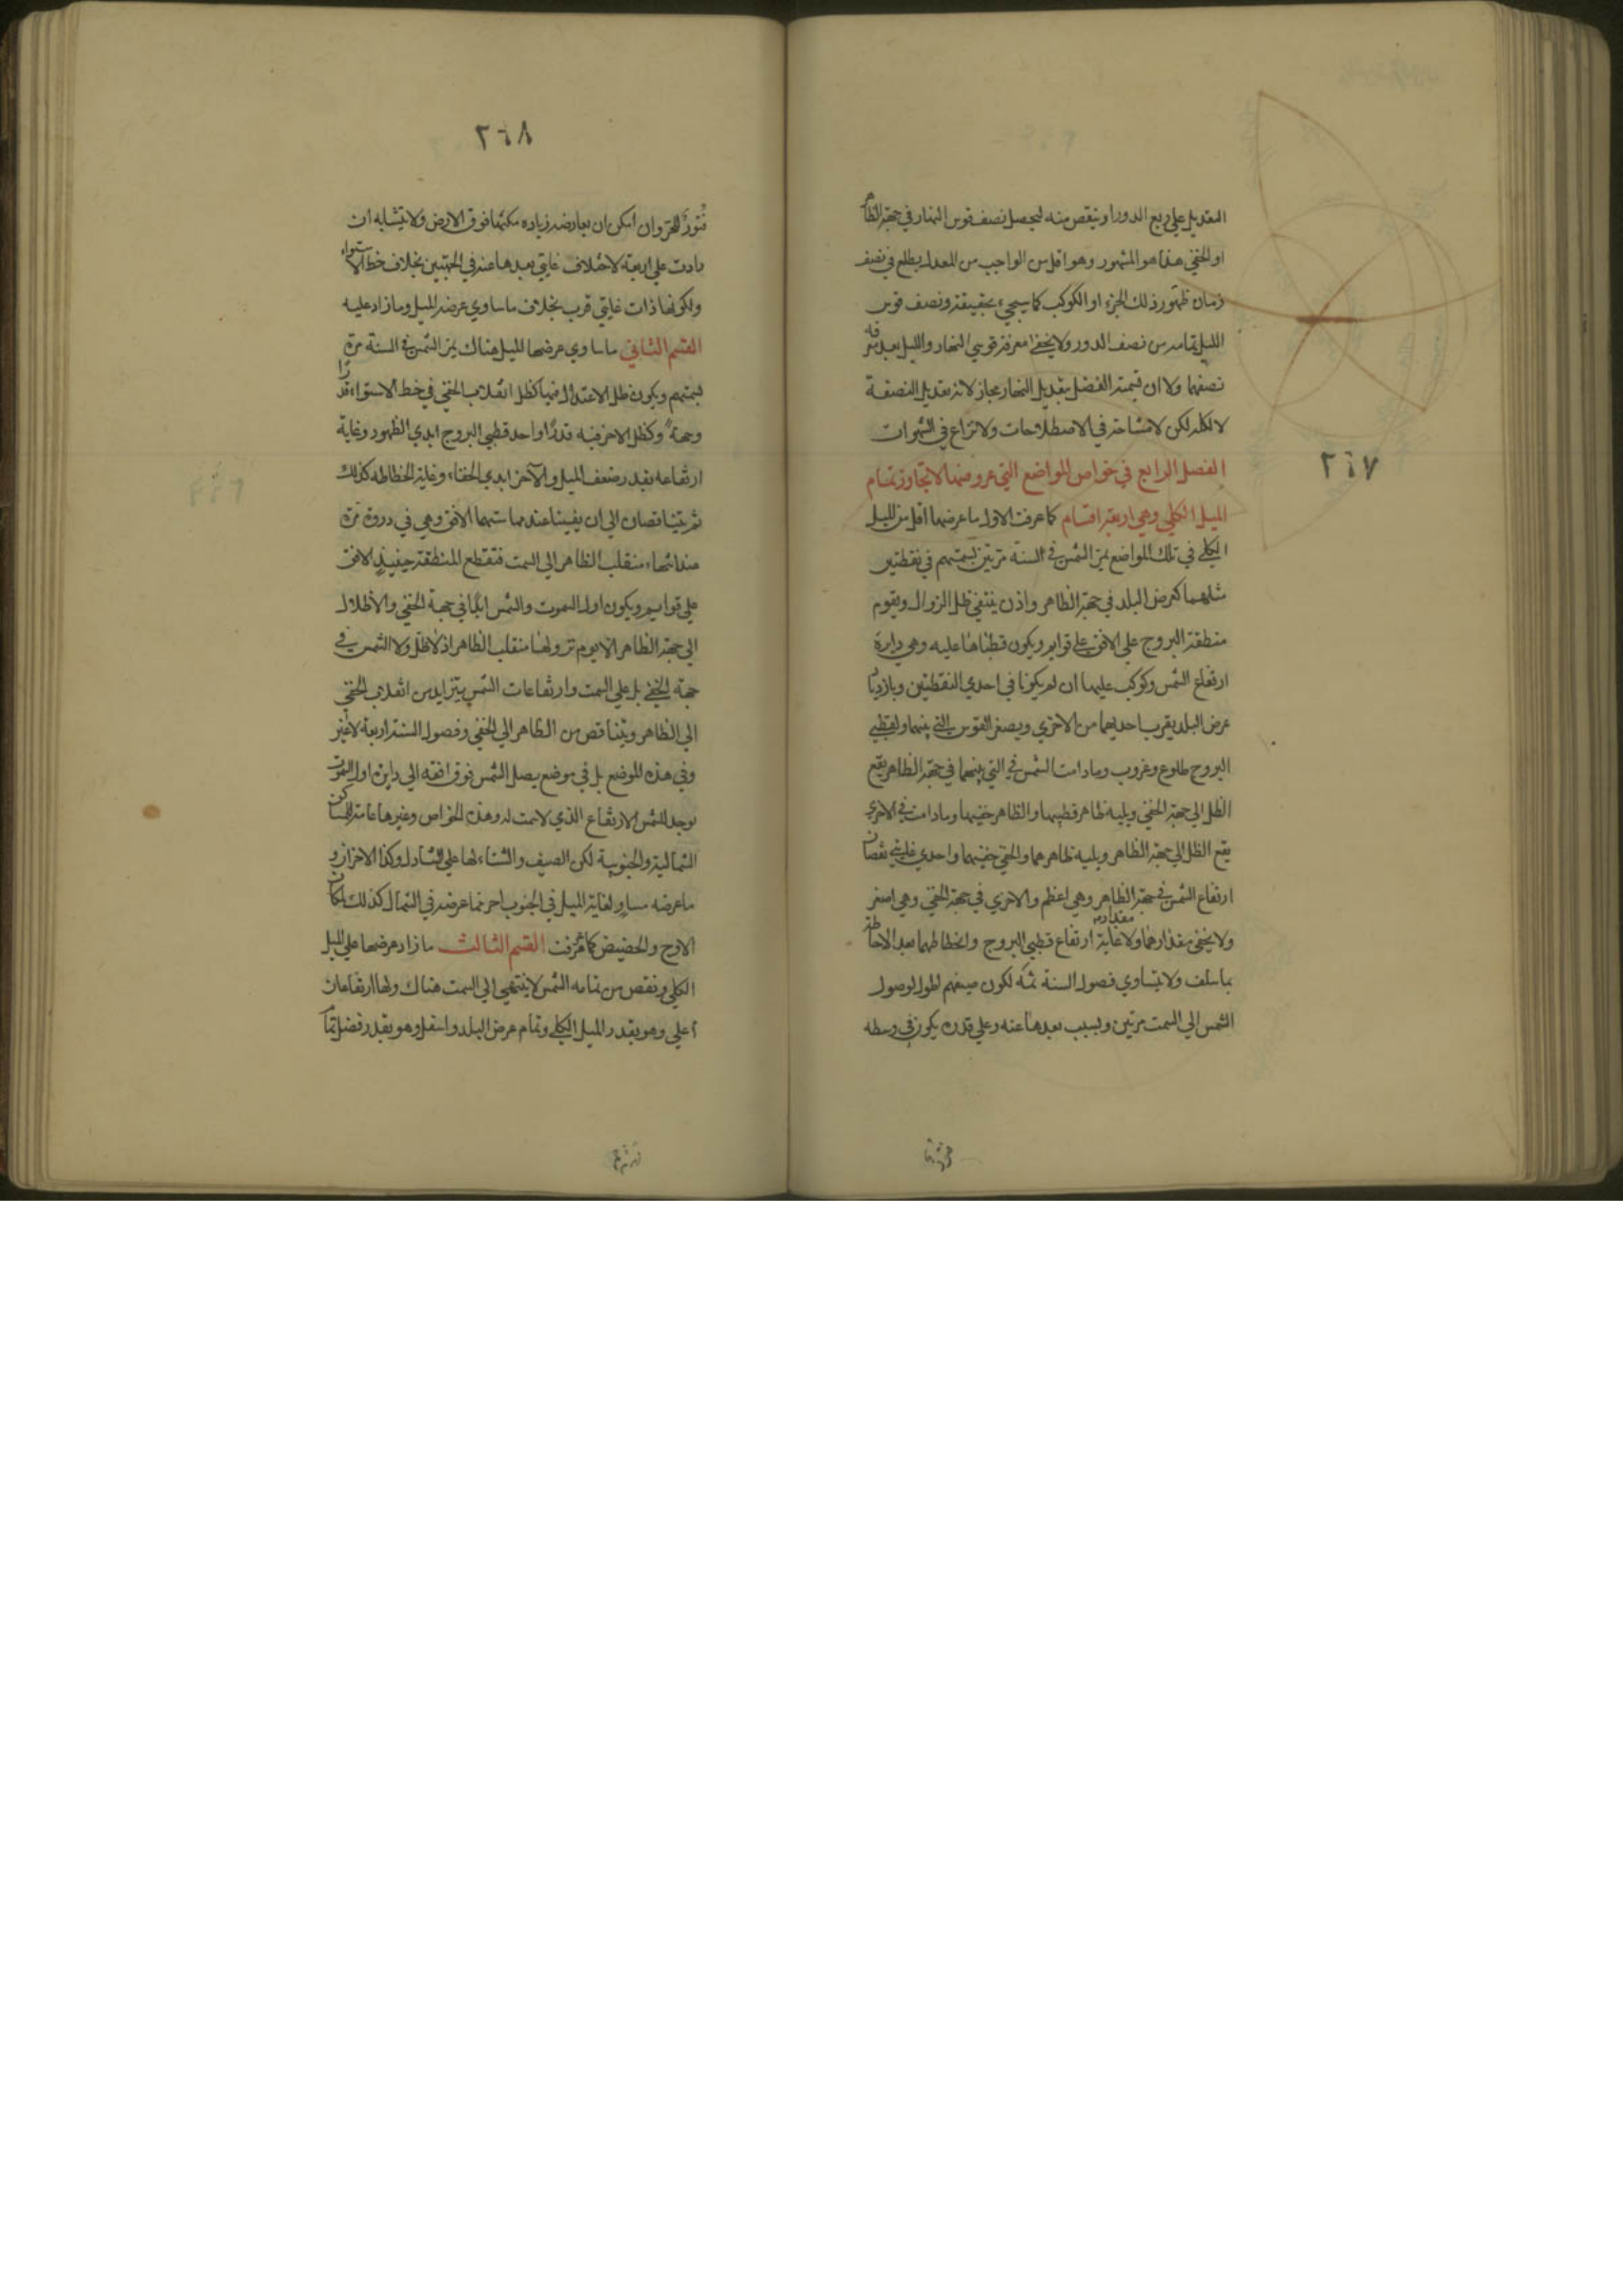 ٢٦٧
التعديل علي ربع الدور او ينقص منه ليحصل نصف قوس النهار في جهة الظا
او الخفي هذا هو المشهور وهو اقل من الواجب من المعدل يطلع في نصف
زمان ظهور ذلك الجزء او الكوكب كما سيجيء بحقيقته ونصف قوس
الليل تمامه من نصف الدور ولا يخفي معرفة قوسي النهار والليل بعد معرفه
نصفهما ولا ان تسمية الفضل بتعديل النهار مجاز لانه تعديل النصفة
لا لكله لكن لا مشاحة في الاصطلاحات ولا نزاع في الشهوات
الفصل الرابع في خواص المواضع التي عروضها لا تتجاوز تمام
الميل الكلي وهي اربعة اقسام كما عرفت الاول ما عرضها اقل من الميل
الكلي في تلك المواضع يمر الشمس في السنة مرتين بسمتهم في نقطتين
ميلهما كعرض البلد في جهة الظاهر واذن ينتفي ظل الزوال ويقوم
منطقة البروج علي الافق علي قوايم ويكون قطباها عليه وهي دايرة
ارتفاع الشمس وكوكب عليها ان لم يكونا في احدي النقطتين وبازدياد
عرض البلد يقرب احديهما من الاخري ويصغر القوس التي بينهما ولقطبي
البروج طلوع وغروب وما دامت الشمس في التي بينهما في جهة الظاهر يقع
الظل الي جهة الخفي ويليه ظاهر قطبيها والظاهر خفيها وما دامت في الاخري
يقع الظل الي جهة الظاهر ويليه ظاهرهما والخفي خفيهما واحدي غايتي نقصان
ارتفاع الشمس في جهة الظاهر وهي اعظم والاخري في جهة الخفي وهي اصغر
ولا يخفي مقدارهما ولا غاية مقدار ارتفاع قطبي البروج وانحطاطهما بعد الاحاطة
بما سلف ولا يتساوي فصول السنة ثمه لكون صيفهم اطول لوصول
الشمس الي السمت مرتين وبسبب بعدها عنه وعلي قدره يكون في وسطه
٢٦٨
فتور للحر وان امكن ان يعارضه زياده مكثها فوق الارض ولا يتشابه ان
زادت علي اربعة لاختلاف غايتي بعدها عنه في الجهتين بخلاف خط الاستواء
ولكونها ذات غايتي قرب بخلاف ما ساوي عرضه الميل وما زاد عليه
القسم الثاني ما ساوي عرضها الميل هناك يمر الشمس في السنة مرة
بسمتهم ويكون ظل الاعتدال فيها كظل انقلاب الخفي في خط الاستواء قدرًا
وجهة وكظل الاخر فيه قدرًا واحد قطبي البروج ابدي الظهور وغاية
ارتفاعه بقدر ضعف الميل والآخر ابدي الخفاء وغاية انحطاطه كذلك
ثم يتناقصان الي ان يفنيا عند مماستهما الافق وهي في دورة مرة
عند انتهاء منقلب الظاهر الي السمت فتقطع المنطقة حينيذ الافق
علي قوايم ويكون اول السموت والشمس ابدًا في جهة الخفي والأظلال
الي جهة الظاهر الا يوم نزولها منقلب الظاهر اذ لا ظل ولا الشمس في
جهة الخفي بل علي السمت وارتفاعات الشمس يتزايد من انقلاب الخفي
الي الظاهر ويتناقص من الظاهر الي الخفي وفصول السنة اربعة لا غير
وفي هذه الموضع بل في موضع يصل الشمس فوق افقه الي دايرة اول السموت
يوجد للشمس الارتفاع الذي لا سمت له وهذه الخواص وغيرها عامة للمساكن
الشمالية والجنوبية لكن الصيف والشتاء لها علي التبادل وكذا الاخران و
ما عرضه مساو لغاية الميل في الجنوب احر مما عرضه في الشمال كذلك لمكان
الاوج والحضيض كما عرفت القسم الثالث ما زاد عرضها علي الميل
الكلي ونقص من تمامه الشمس لا ينتهي الي السمت هناك ولها ارتفاعان
أعلي وهو بقدر الميل الكلي وتمام عرض البلد واسفل وهو بقدر فضل تما